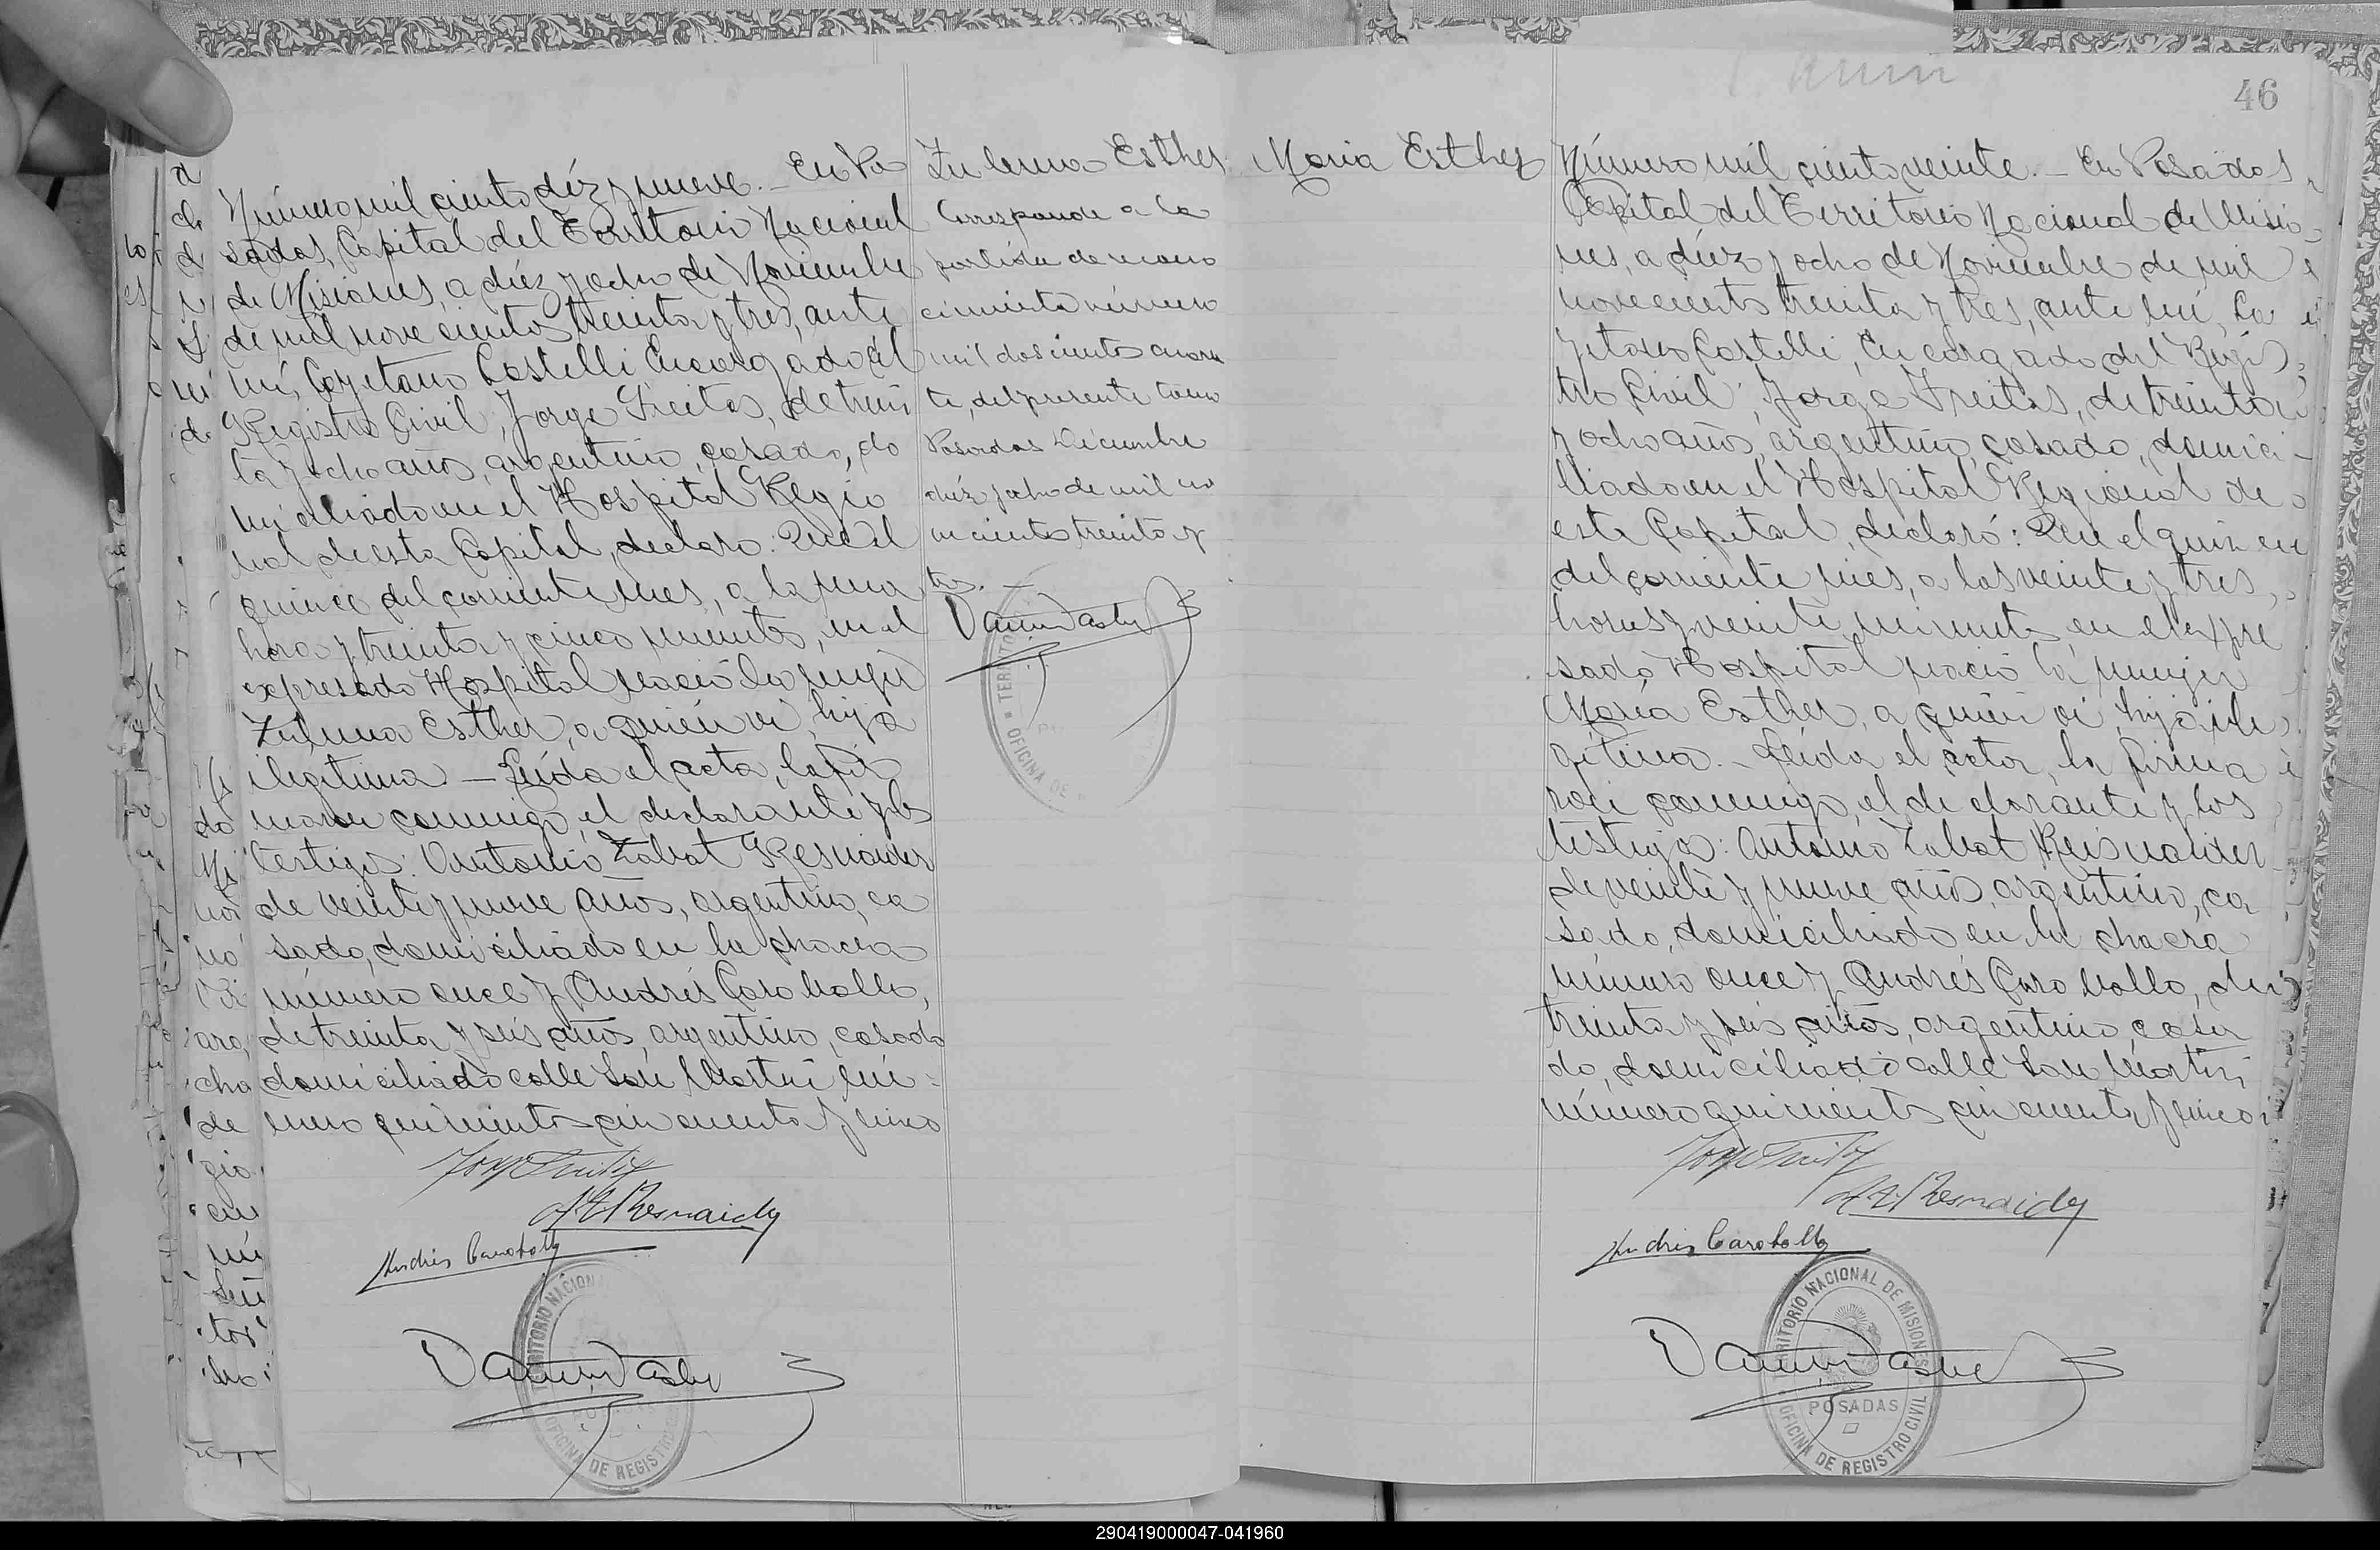 Número mil ciento diéz y nueve. — En Po
sadas, Capital del Territorio Nacional
de Misiones, a diéz y ocho de Noviembre
de mil nove cientos treinta y tres, ante
mí, Cayetano Castelli Encargado del
Registro Civil, Jorge Freitas, de trein
ta y ocho años, argentino, casado, do
miciliado en el Hospital Regio
nal de esta Capital, declaro: Que el
quince del corriente mes, a la una
hora y treinta y cinco minutos, en el
expresado Hospital nació la mujer
Zulema Esther, a quién vi, hija
ilegitima — Leída el acta, la fir
maron conmigo, el declarante y los
testigos: Antonio Zabat Resnaider
de veinte y nueve años, argentino, ca
sado, domiciliado en la chacra
número once y Andrés Caraballo,
de treinta y seis años, argentino, casado
domiciliado calle San Martín nú-
mero quinientos cincuenta y cinco
Andrés Caraballo
TERRITORIO NACIONAL
OFICINA DE REGISTRO
Zulema Esther
Corresponde a la
partida de recono
cimiento número
mil doscientos cuaren
ta, del presente tomo
Posadas Diciembre
diéz y ocho de mil no
vecientos treinta y
tres. —
OFICINA DE
46
Maria Esther
Número mil ciento veinte. — En Posadas
Capital del Territorio Nacional de Misio-
nes, a diéz y ocho de Noviembre de mil
novecientos treinta y tres, ante mí, Ca
yetano Castelli, Encargado del Regis
tro Civil, Jorge Freitas, de treinta
y ocho años, argentino, casado, domici-
liado en el Hospital Regional de
esta Capital, declaró: Que el quince
del corriente mes, a las veinte y tres,
horas y veinte minutos, en el expre
sado Hospital nació la mujer
María Esther, a quién vi, hija ile
gitima. — Leída el acta, la firma
ron conmigo, el declarante y los
testigos: Antonio Zabat Reisnaider
de veinte y nueve años, argentino, ca
sado, domiciliado en la chacra
número once y Andrés Caraballo, de
treinta y seis años, argentino, casa
do, domiciliado calle San Martín
número quinientos cincuenta y cinco
Andrés Caraballo
TERRITORIO NACIONAL DE MISIONES
POSADAS
OFICINA DE REGISTRO CIVIL
290419000047-041960